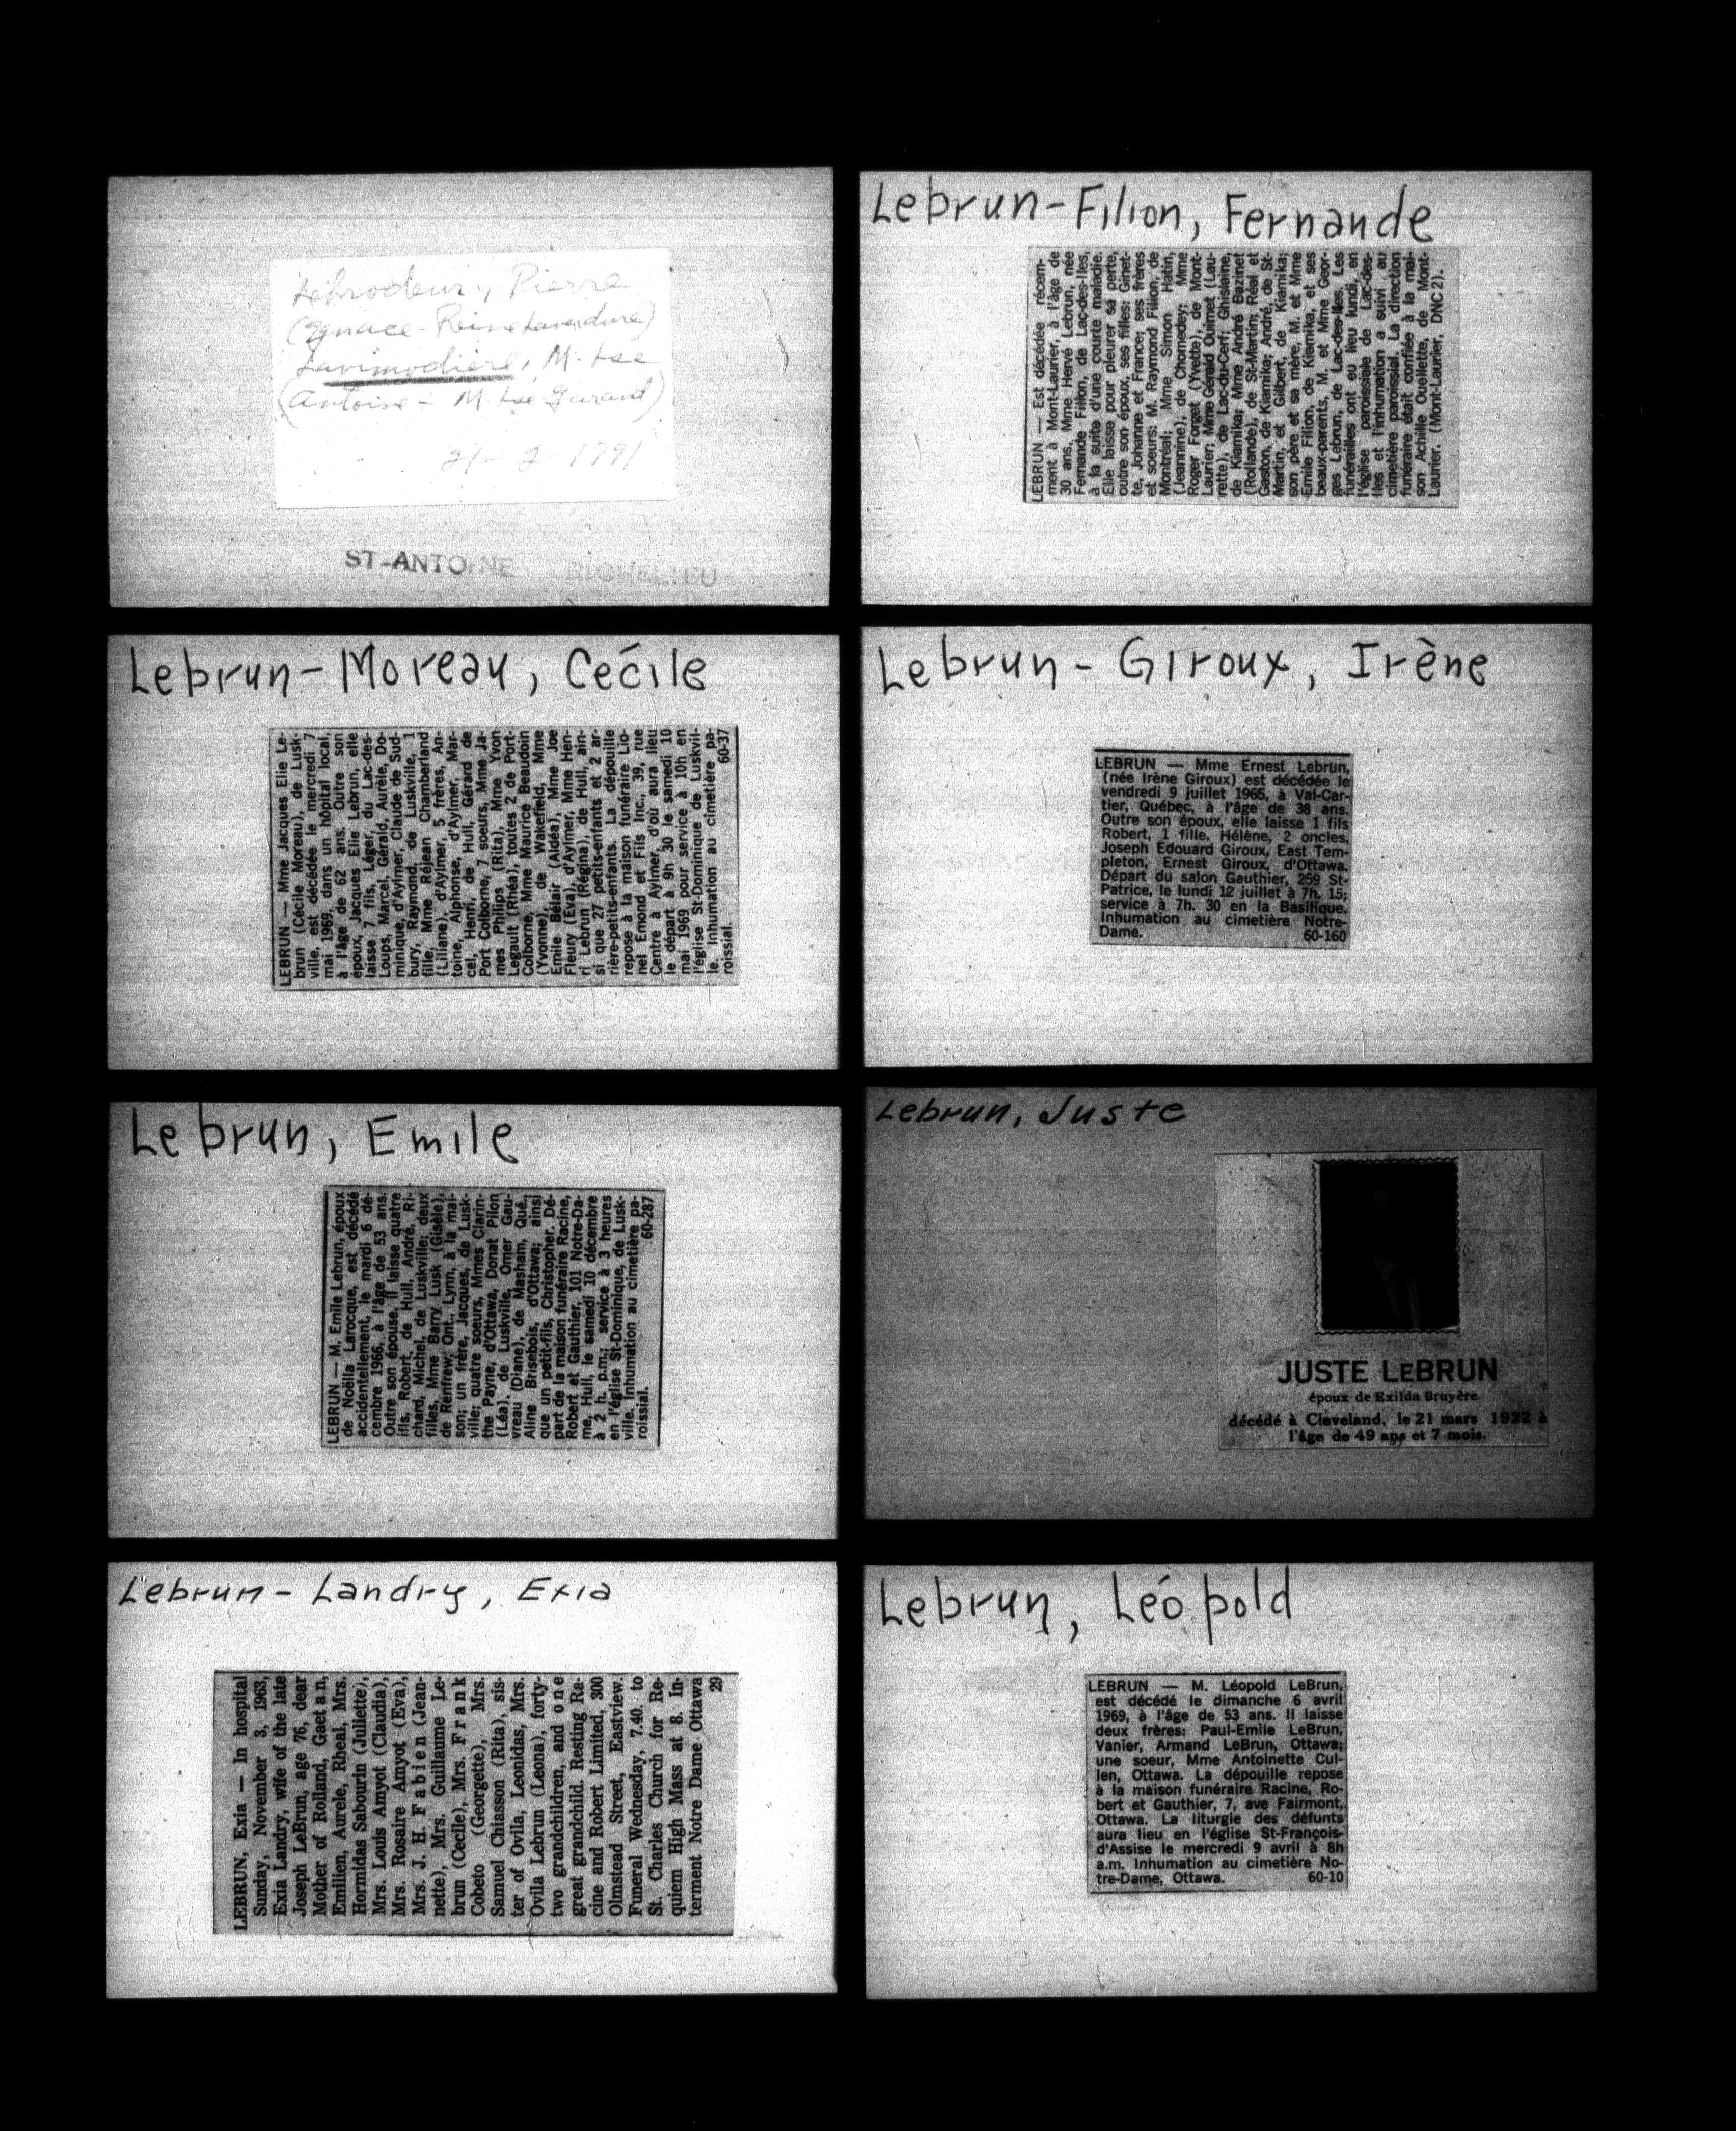 Lebrodeur, Pierre
(Ignace - Reine Laverdure)
Lavimodière, M. Lse
(Antoine - M. Lse Gurard)
21-2-1791
ST-ANTOINE RICHELIEU
Lebrun-Filion, Fernande
LEBRUN — Est décédée récem-
ment à Mont-Laurier, à l'âge de
30 ans, Mme Hervé Lebrun, née
Fernande Filion, de Lac-des-Iles,
à la suite d'une courte maladie.
Elle laisse pour pleurer sa perte,
outre son époux, ses filles: Ginet-
te, Johanne et France; ses frères
et soeurs: M. Raymond Filion, de
Montréal; Mme Simon Hatin,
(Jeannine), de Chomedey; Mme
Roger Forget (Yvette), de Mont-
Laurier; Mme Gérald Ouimet (Lau-
rette), de Lac-du-Cerf; Ghislaine,
de Kiamika; Mme André Bazinet
(Rollande), de St-Martin; Réal et
Gaston, de Kiamika; André, de St-
Martin, et Gilbert, de Kiamika;
son père et sa mère, M. et Mme
Emile Filion, de Kiamika, et ses
beaux-parents, M. et Mme Geor-
ges Lebrun, de Lac-des-Iles. Les
funérailles ont eu lieu lundi, en
l'église paroissiale de Lac-des-
Iles et l'inhumation a suivi au
cimetière paroissial. La direction
funéraire était confiée à la mai-
son Achille Ouellette, de Mont-
Laurier. (Mont-Laurier, DNC 2).
Lebrun-Moreau, Cécile
LEBRUN — Mme Jacques Elie Le-
brun (Cécile Moreau), de Lusk-
ville, est décédée le mercredi 7
mai 1969, dans un hôpital local,
à l'âge de 62 ans. Outre son
époux, Jacques Elie Lebrun, elle
laisse 7 fils, Léger, du Lac-des-
Loups, Marcel, Gérald, Aurèle, Do-
minique, d'Aylmer, Claude de Sud-
bury, Raymond, de Luskville, 1
fille, Mme Réjean Chamberland
(Liliane), d'Aylmer, 5 frères, An-
toine, Alphonse, d'Aylmer, Mar-
cel, Henri, de Hull, Gérard de
Port Colborne, 7 soeurs, Mme Ja-
mes Philips (Rita), Mme Yvon
Legault (Rhéa), toutes 2 de Port-
Colborne, Mme Maurice Beaudoin
(Yvonne), de Wakefield, Mme
Emile Bélair (Aldéa), Mme Joe
Fleury (Eva), d'Aylmer, Mme Hen-
ri Lebrun (Régina), de Hull, ain-
si que 27 petits-enfants et 2 ar-
rière-petits-enfants. La dépouille
repose à la maison funéraire Lio-
nel Emond et Fils Inc., 39, rue
Centre à Aylmer, d'où aura lieu
le départ à 9h 30 le samedi 10
mai 1969 pour service à 10h en
l'église St-Dominique de Luskvil-
le. Inhumation au cimetière pa-
roissial. 60-37
Lebrun - Giroux, Irène
LEBRUN — Mme Ernest Lebrun,
(née Irène Giroux) est décédée le
vendredi 9 juillet 1965, à Val-Car-
tier, Québec, à l'âge de 38 ans.
Outre son époux, elle laisse 1 fils
Robert, 1 fille, Hélène, 2 oncles,
Joseph Edouard Giroux, East Tem-
pleton, Ernest Giroux, d'Ottawa.
Départ du salon Gauthier, 259 St-
Patrice, le lundi 12 juillet à 7h. 15;
service à 7h. 30 en la Basilique.
Inhumation au cimetière Notre-
Dame. 60-160
Lebrun, Emile
LEBRUN — M. Emile Lebrun, époux
de Noëlla Larocque, est décédé
accidentellement, le mardi 6 dé-
cembre 1966, à l'âge de 53 ans.
Outre son épouse, il laisse quatre
fils, Robert, de Hull, André, Ri-
chard, Michel, de Luskville; deux
filles, Mme Barry Lusk (Gisèle),
de Renfrew, Ont., Lynn, à la mai-
son; un frère, Jacques, de Lusk-
ville; quatre soeurs, Mmes Clarin-
the Payne, d'Ottawa, Donat Pilon
(Léa), de Luskville, Omer Gau-
vreau (Diane), de Masham, Qué.,
Aline Brisebois, d'Ottawa; ainsi
que un petit-fils, Christopher. Dé-
part de la maison funéraire Racine,
Robert et Gauthier, 101 Notre-Da-
me, Hull, le samedi 10 décembre
à 2 h. p.m.; service à 3 heures
en l'église St-Dominique, de Lusk-
ville. Inhumation au cimetière pa-
roissial. 60-287
Lebrun, Juste
JUSTE LEBRUN
époux de Exilda Bruyère
décédé à Cleveland, le 21 mars 1922 à
l'âge de 49 ans et 7 mois.
Lebrun - Landry, Exia
LEBRUN, Exia — In hospital
Sunday, November 3, 1963,
Exia Landry, wife of the late
Joseph LeBrun, age 76, dear
Mother of Rolland, Gaetan,
Emilien, Aurele, Rheal, Mrs.
Hormidas Sabourin (Juliette),
Mrs. Louis Amyot (Claudia),
Mrs. Rosaire Amyot (Eva),
Mrs. J. H. Fabien (Jean-
nette), Mrs. Guillaume Le-
brun (Cecile), Mrs. Frank
Cobeto (Georgette), Mrs.
Samuel Chiasson (Rita), sis-
ter of Ovila, Leonidas, Mrs.
Ovila Lebrun (Leona), forty-
two grandchildren, and one
great grandchild. Resting Ra-
cine and Robert Limited, 300
Olmstead Street, Eastview.
Funeral Wednesday, 7.40. to
St. Charles Church for Re-
quiem High Mass at 8. In-
terment Notre Dame Ottawa
29
Lebrun, Léopold
LEBRUN — M. Léopold LeBrun,
est décédé le dimanche 6 avril
1969, à l'âge de 53 ans. Il laisse
deux frères: Paul-Emile LeBrun,
Vanier, Armand LeBrun, Ottawa;
une soeur, Mme Antoinette Cul-
len, Ottawa. La dépouille repose
à la maison funéraire Racine, Ro-
bert et Gauthier, 7, ave Fairmont,
Ottawa. La liturgie des défunts
aura lieu en l'église St-François-
d'Assise le mercredi 9 avril à 8h
a.m. Inhumation au cimetière No-
tre-Dame, Ottawa. 60-10